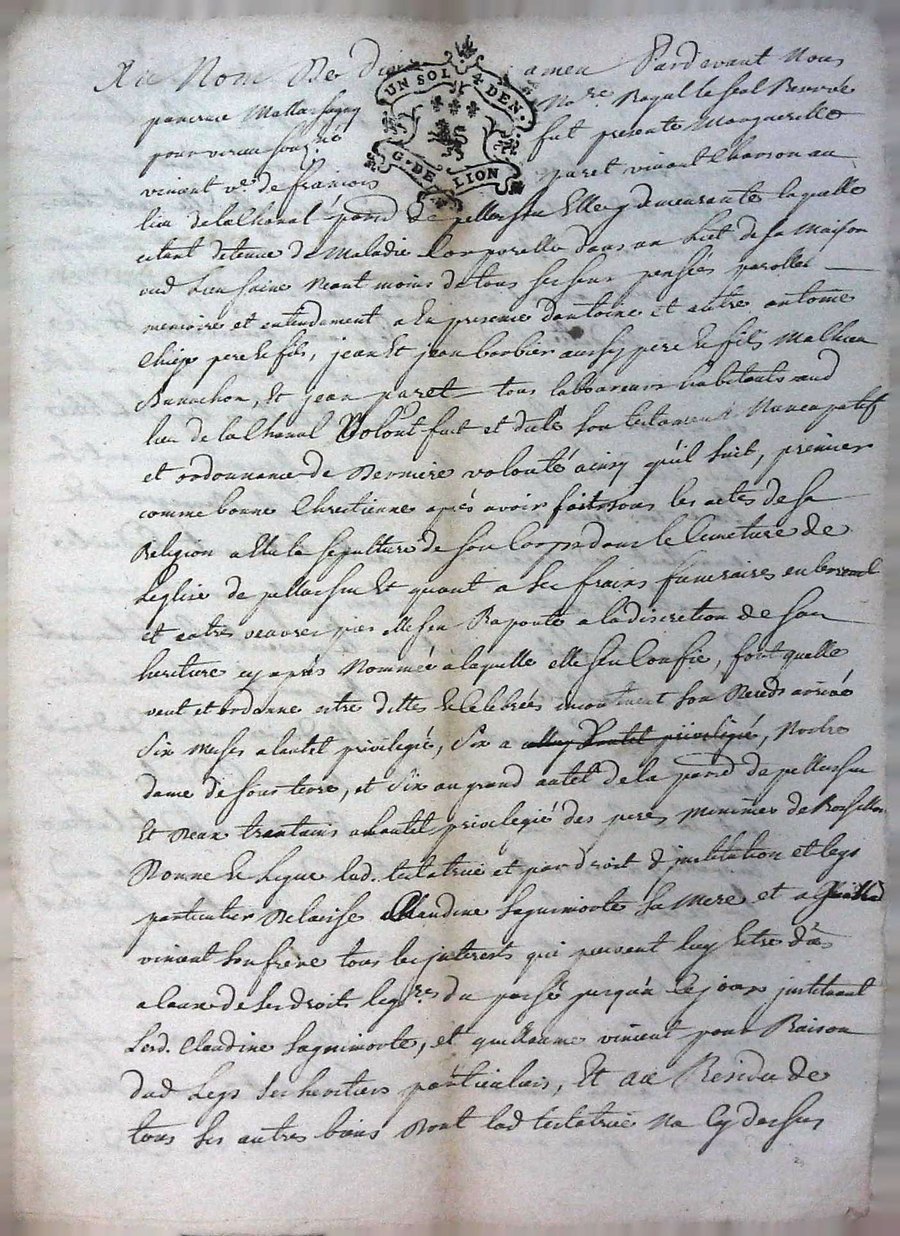 Au Nom De dieu amen Pardevant Nous
UN SOL 4 DEN.
G. DE LION
No.re Royal
fut presente Marguerette
vincent v.e de francois paret vivant Charon au
lieu de la Chanal parr.e de pellussin Elle y demeurante laquelle
estant detenue de Maladie Corporelle dans un Lict de sa Maison
aud Lieu saine Neant moins de tous ses sens pensées parolles
memoire et entendement a En presence dantoine et autre antoine
Chiep pere et fils, jean Et jean barbier aussy pere et fils Mathieu
Et jean paret tous laboureurs habitants aud
lieu de la Chanal Volont. fait et dicté son testament Nuncupatif
et ordonnance de Derniere volonté ainsy quil suit, premier
comme bonne Chrétienne aprés avoir fait tous les actes de sa
Religion a Elu la sepulture de son Corps dans le Cimetiere de
Leglise de pellussin Et quant a ses frains funeraires enterrement
et autres oeuvres pies Elle sen Raporte a la discretion de son
heritiere cy aprés Nommée a laquelle elle sen Confie, fors quelle
veut et ordonne estre dittes et Celebrées incontinent son Deceds arrivé
Six Messes a lautel privilegié, Six a Nostre
dame de sous terre, et Six au grand autel de la parr.e de pellussin
Et Deux trantains a lautel privilegié des peres Minimes de Roussillon
Donne Et Legue lad. testatrice et par droit d'institution et legs
particulier Delaisse a Claudine Saguimorte Sa Mere et a
vincent son frere tous les jnterests qui peuvent luy Estre dus
a cause de ses droits leg.res du passé jusqua Ce jour jnstituant
Lesd. Claudine Saguimorte, et guillaume vincent pour Raison
dud Legs ses heritiers particuliers, Et au Residu de
tous ses autres biens Dont lad testatrice Na Cy dessus